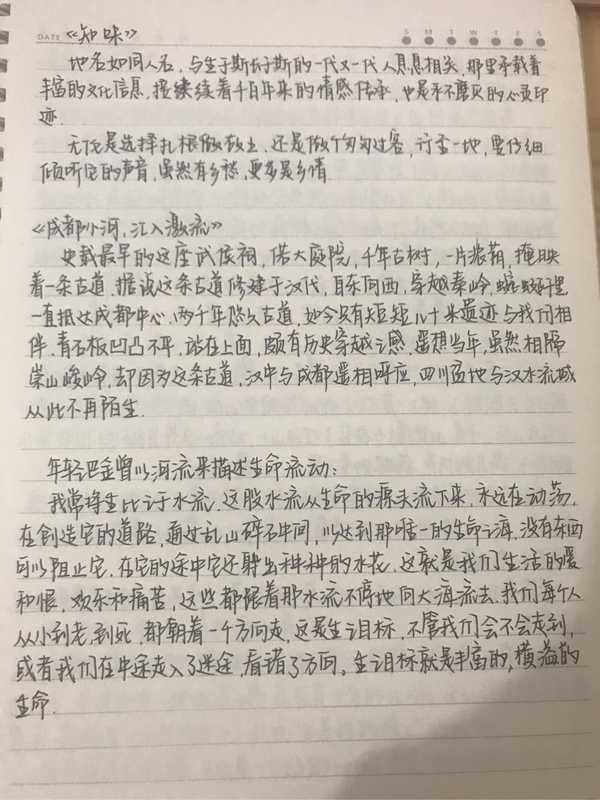 DATE
S M T W T F S
《知味》
地名如同人名，与生于斯长于斯的一代又一代人息息相关，那里承载着
丰富的文化信息，接续着千百年来的情感传承，也是永不磨灭的心灵印
迹.
无论是选择扎根做故土，还是做个匆匆过客，行至一地，要仔细
倾听它的声音，虽然有乡愁，更多是乡情
《成都小河，汇入激流》
史载最早的这座武侯祠，偌大庭院，千年古树，一片浓荫，掩映
着一条古道.据说这条古道修建于汉代，自东向西，穿越秦岭，蜿蜒千里
一直抵达成都中心.两千年悠久古道，如今只有短短几十米遗迹与我们相
伴.青石板凹凸不平，站在上面，颇有历史穿越之感.遥想当年，虽然相隔
崇山峻岭，却因为这条古道，汉中与成都遥相呼应，四川盆地与汉水流域
从此不再陌生.
年轻巴金曾以河流来描述生命流动：
我常将生比于水流.这股水流从生命的源头流下来，永远在动荡，
在创造它的道路，通过乱山碎石中间，以达到那唯一的生命之海.没有东西
可以阻止它.在它的途中它还射出种种的水花.这就是我们生活的爱
和恨，欢乐和痛苦，这些都跟着那水流不停地向大海流去.我们每个人
从小到老，到死，都朝着一个方向走，这是生之目标，不管我们会不会走到，
或者我们在中途走入了迷途，看错了方向。生之目标就是丰富的，横溢的
生命.